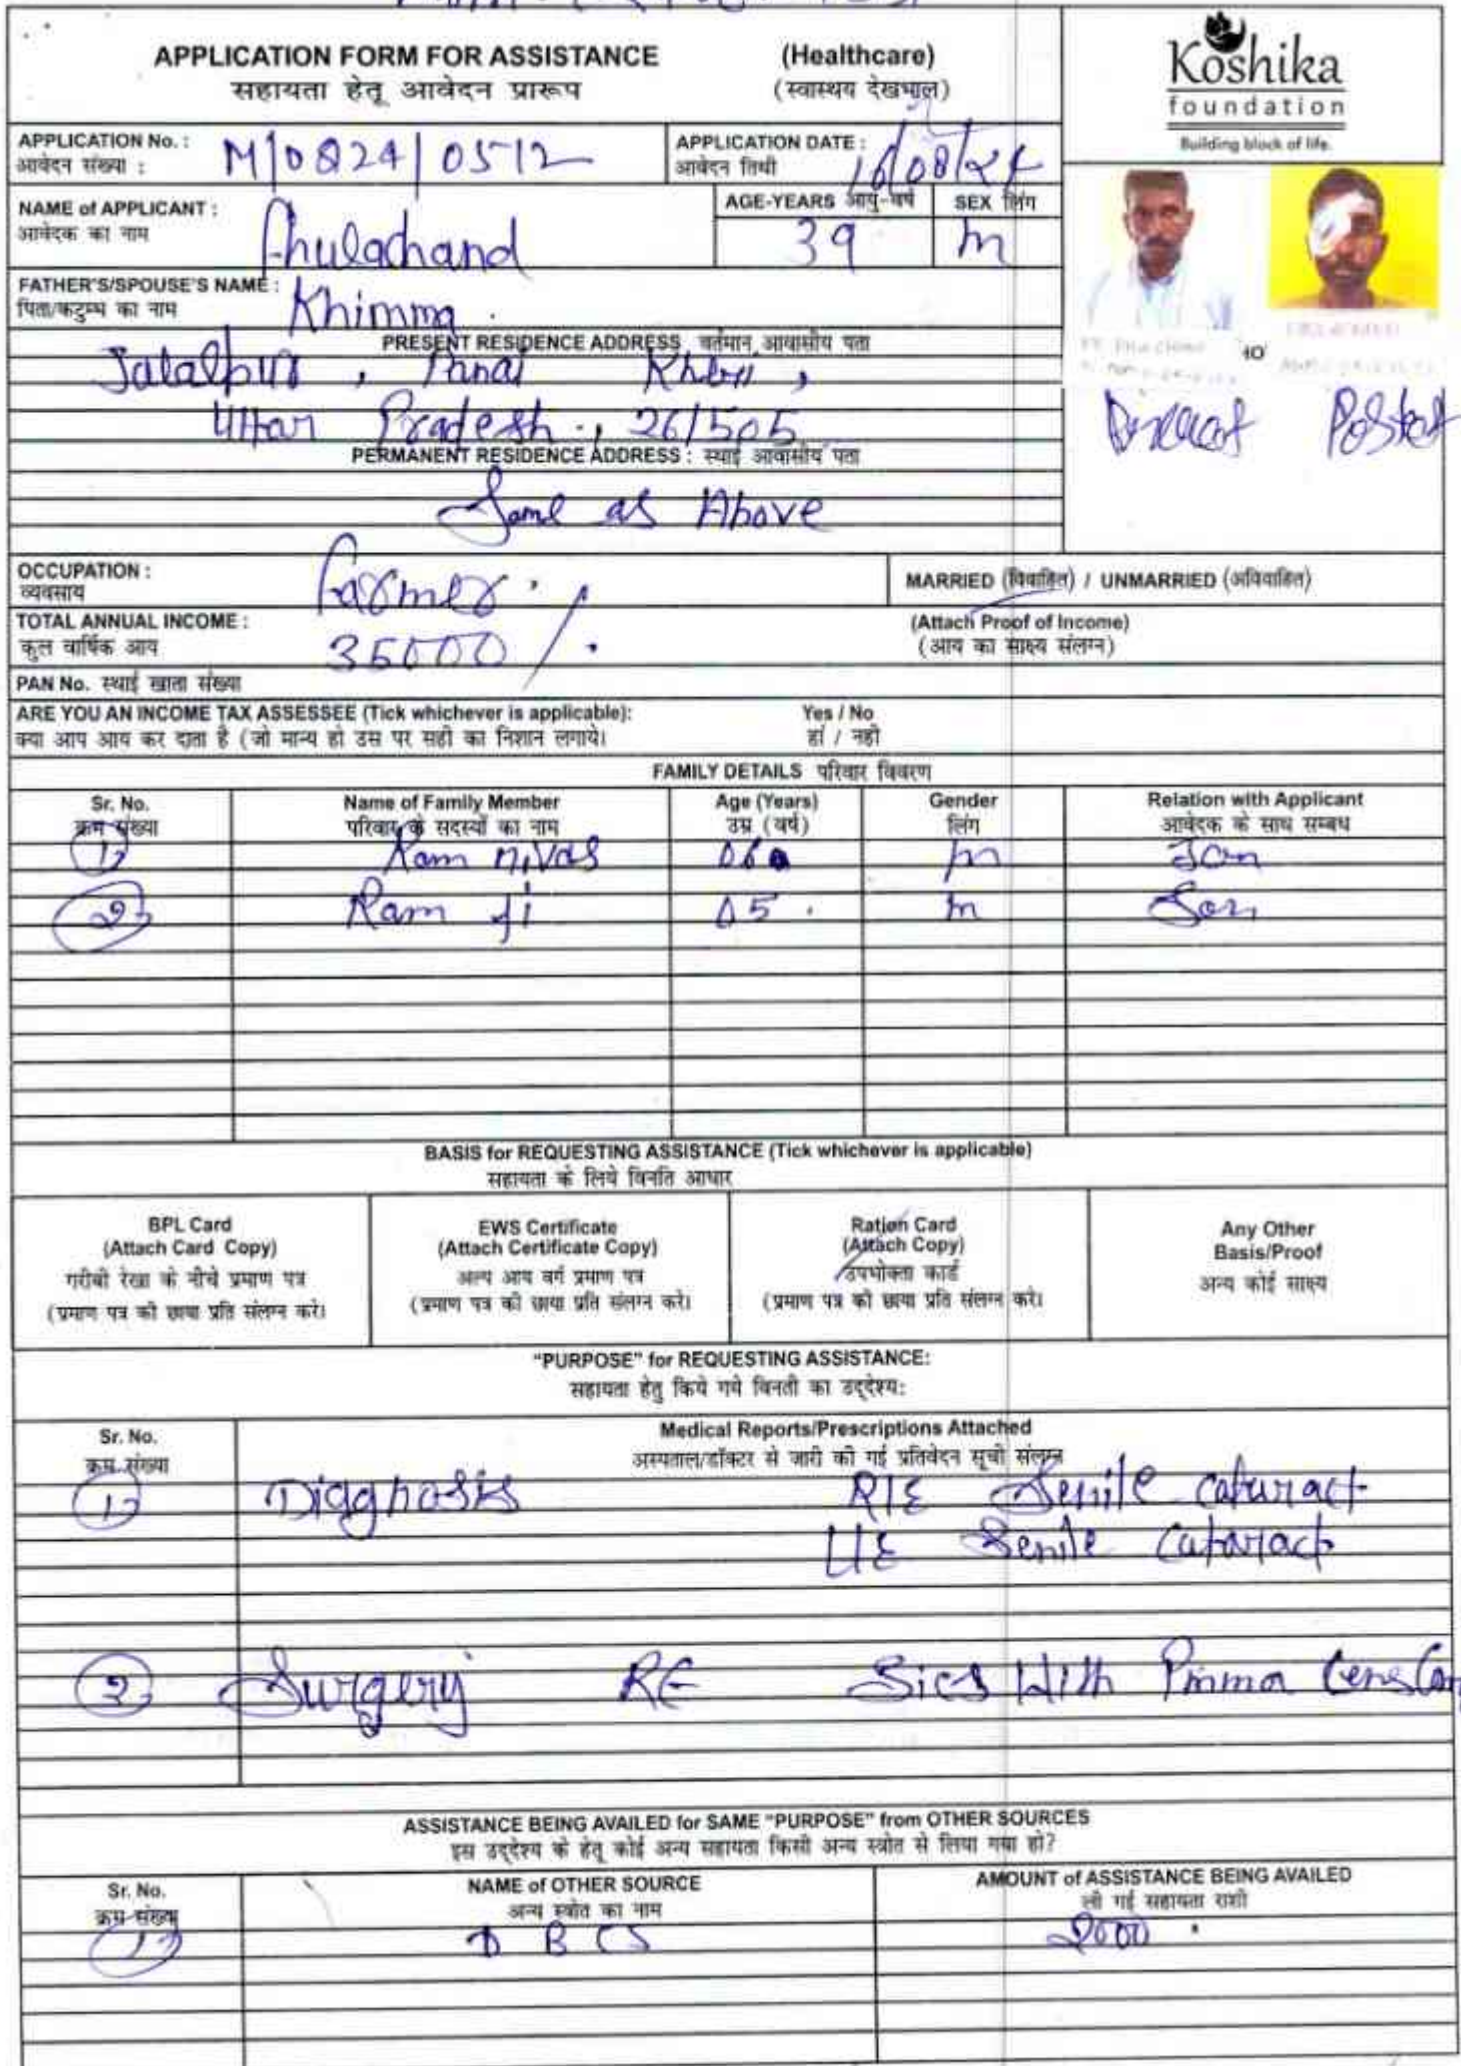 APPLICATION FORM FOR ASSISTANCE (Healthcare)
सहायता हेतू आवेदन प्रारूप (स्वास्थय देखभाल)
Koshika
foundation
Building block of life.
APPLICATION No. : M/0824/0512
आवेदन संख्या :
APPLICATION DATE : 16/08/24
आवेदन तिथी
NAME of APPLICANT : Phulachand
आवेदक का नाम
AGE-YEARS आयु-वर्ष 39
SEX लिंग m
FATHER'S/SPOUSE'S NAME : Khimma
पिता/कटुम्ब का नाम
PRESENT RESIDENCE ADDRESS वर्तमान आवासीय पता
Jalalpur,
Uttar Pradesh, 261505
PERMANENT RESIDENCE ADDRESS : स्थाई आवासीय पता
Same as Above
OCCUPATION : Farmer
व्यवसाय
MARRIED (विवाहित) / UNMARRIED (अविवाहित)
TOTAL ANNUAL INCOME : 35000/.
कुल वार्षिक आय
(Attach Proof of Income)
(आय का साक्ष्य संलग्न)
PAN No. स्थाई खाता संख्या
ARE YOU AN INCOME TAX ASSESSEE (Tick whichever is applicable): Yes / No
क्या आप आय कर दाता है (जो मान्य हो उस पर सही का निशान लगाये। हां / नही
FAMILY DETAILS परिवार विवरण
Sr. No. Name of Family Member Age (Years) Gender Relation with Applicant
क्रम संख्या परिवार के सदस्यों का नाम उम्र (वर्ष) लिंग आवेदक के साथ सम्बध
1) Ram nivas 06 m Son
2) Ram ji 05 . m Son
BASIS for REQUESTING ASSISTANCE (Tick whichever is applicable)
सहायता के लिये विनति आधार
BPL Card
(Attach Card Copy)
गरीबी रेखा के नीचे प्रमाण पत्र
(प्रमाण पत्र की छाया प्रति संलग्न करे।
EWS Certificate
(Attach Certificate Copy)
अल्प आय वर्ग प्रमाण पत्र
(प्रमाण पत्र की छाया प्रति संलग्न करे।
Ration Card
(Attach Copy)
उपभोक्ता कार्ड
(प्रमाण पत्र की छाया प्रति संलग्न करे।
Any Other
Basis/Proof
अन्य कोई साक्ष्य
"PURPOSE" for REQUESTING ASSISTANCE:
सहायता हेतु किये गये विनती का उद्देश्य:
Sr. No. Medical Reports/Prescriptions Attached
क्रम संख्या अस्पताल/डॉक्टर से जारी की गई प्रतिवेदन सूची संलग्न
1) Diagnosis R/E Senile cataract
L/E Senile Cataract
2) Surgery RE Sics With Pmma Lens
ASSISTANCE BEING AVAILED for SAME "PURPOSE" from OTHER SOURCES
इस उद्देश्य के हेतू कोई अन्य सहायता किसी अन्य स्त्रोत से लिया गया हो?
Sr. No. NAME of OTHER SOURCE AMOUNT of ASSISTANCE BEING AVAILED
क्रम संख्या अन्य स्त्रोत का नाम ली गई सहायता राशी
1) D B C S 2000